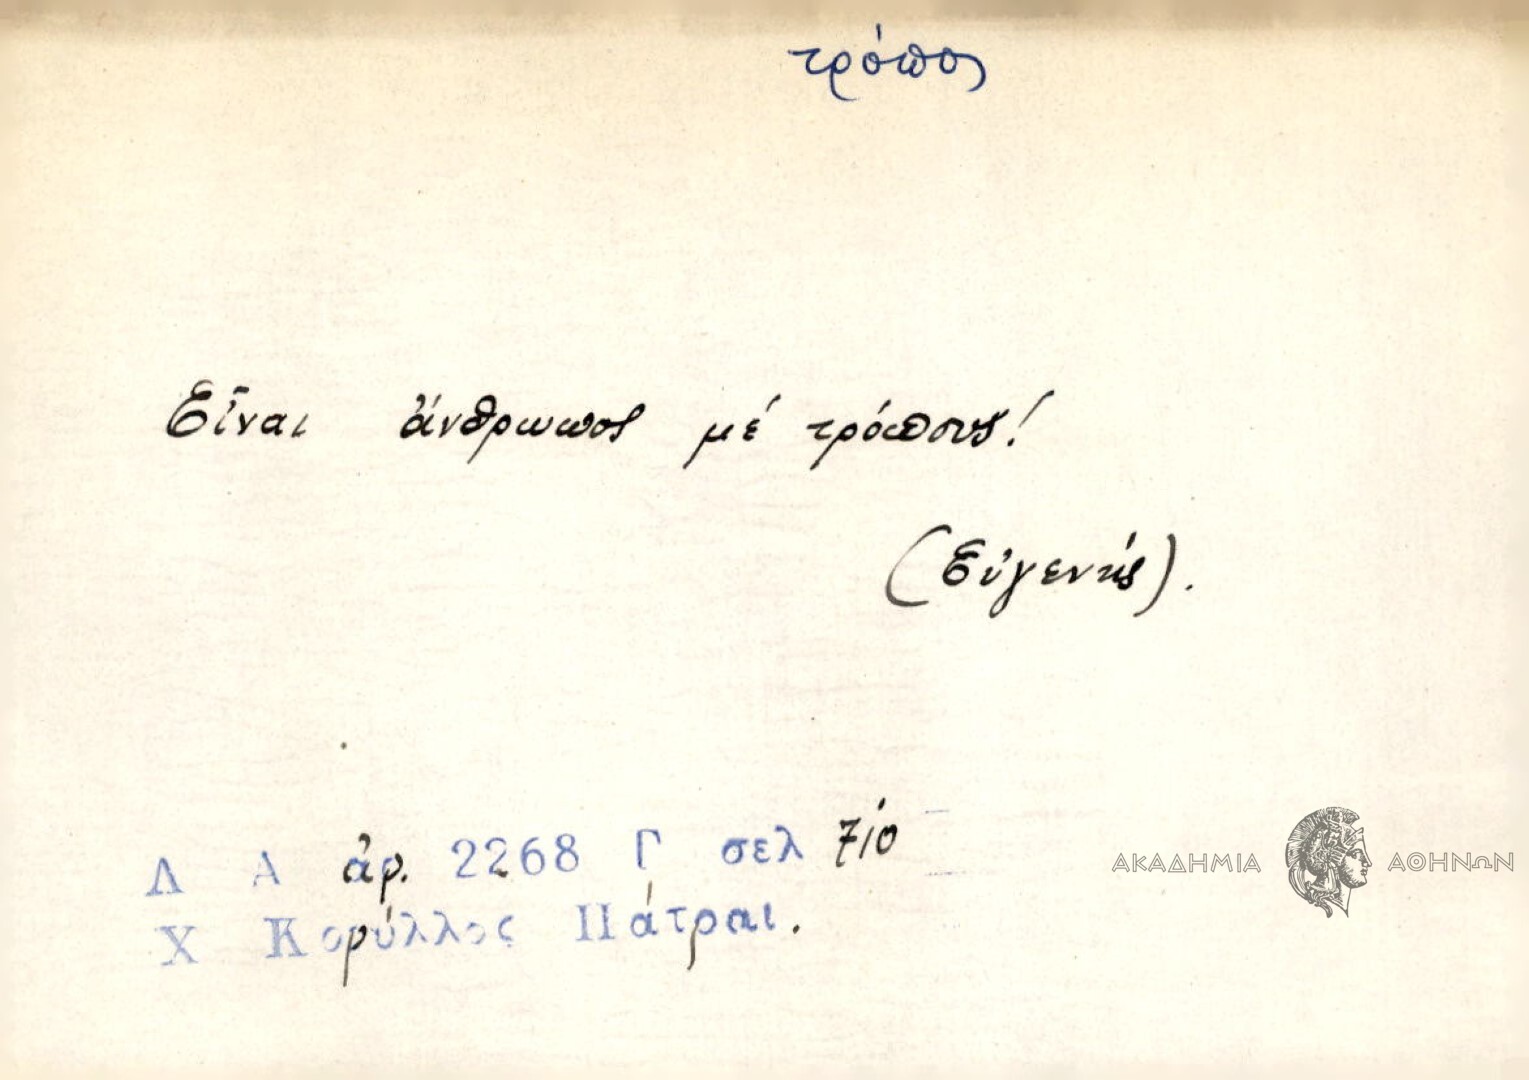 τρόπος
Εἶναι ἄνθρωπος μέ τρόπους!
(Εὐγενής).
Λ Α ἀρ. 2268 Γ σελ 710
ΑΚΑΔΗΜΙΑ ΑΘΗΝΩΝ
Χ Κορύλλος Πάτραι.